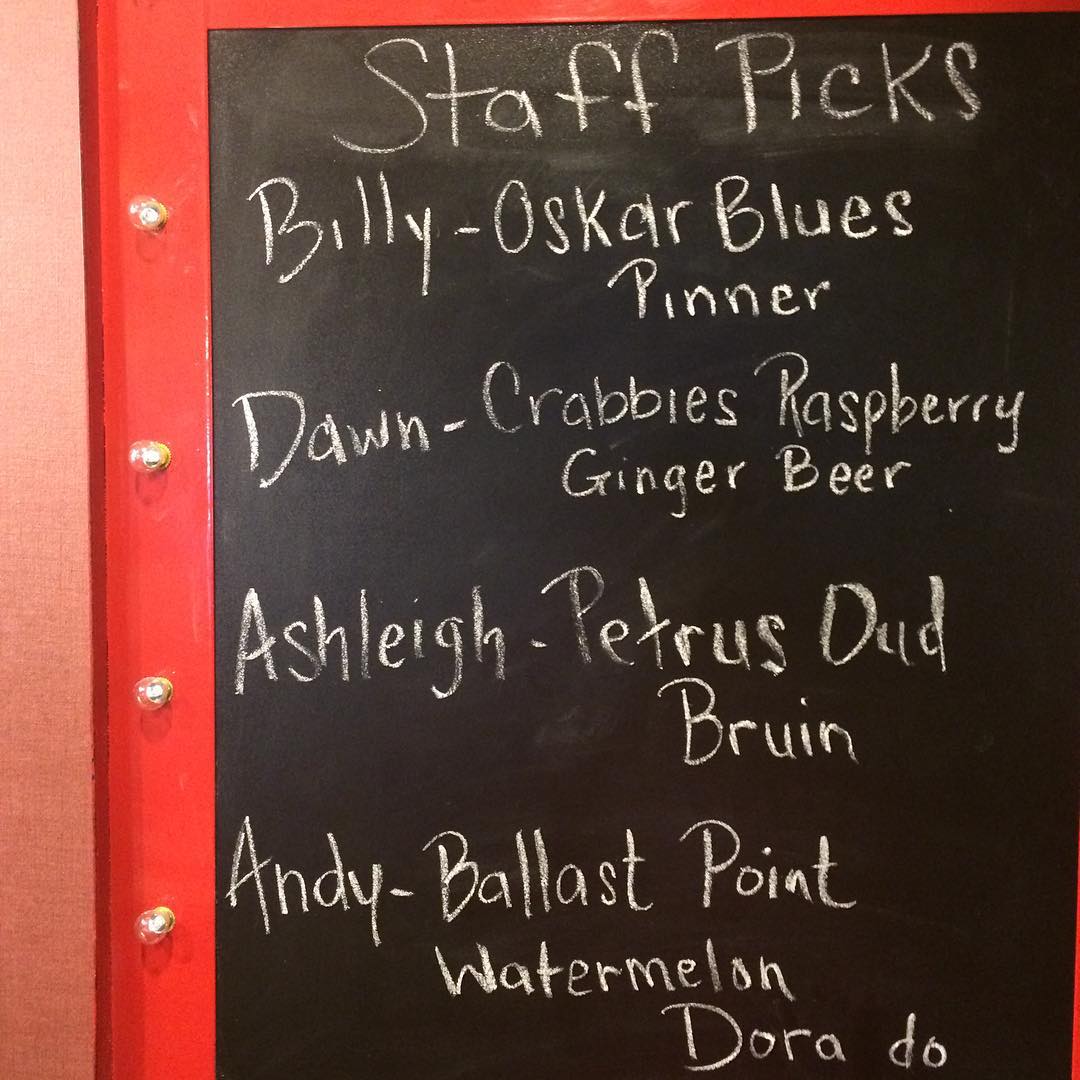 Staff Picks
Billy - Oskar Blues
Pinner
Dawn - Crabbies Raspberry
Ginger Beer
Ashleigh - Petrus Oud
Bruin
Andy - Ballast Point
Watermelon
Dora do